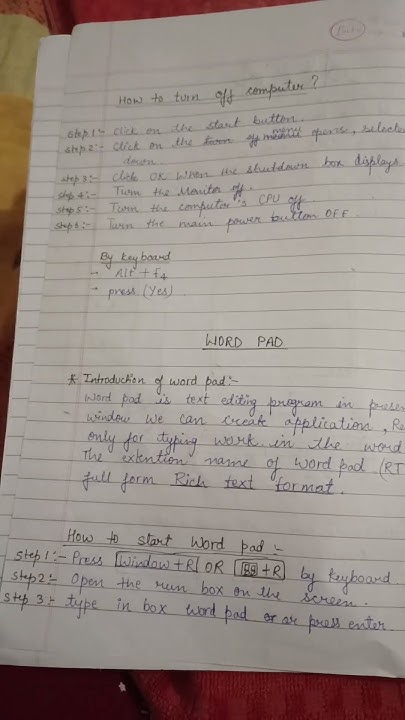 How to turn off computer?
Step 1:- Click on the start button.
Step 2:- Click on the menu opens, selecte
down.
Step 3:- Click OK when the shutdown box displays
Step 4:- Turn the Monitor off.
Step 5:- Turn the computer's CPU off.
Step 6:- Turn the main power button OFF.
By keyboard
- Alt + f4
- press (Yes)
WORD PAD
* Introduction of word pad:-
Word pad is text editing program in presen
window we can create application, Re
only for typing work in the word
The extention name of word pad (RT
full form Rich text format.
How to start Word pad:-
Step 1:- Press Window + R OR + R by keyboard
Step 2:- Open the run box on the screen.
Step 3:- type in box word pad or press enter.